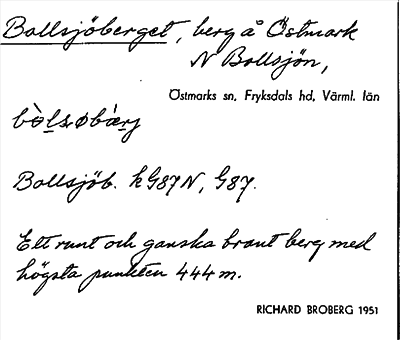 Bollsjöberget, berg å Östmark
N Bollsjön,
Östmarks sn, Fryksdals hd, Värml. län
Bollsjöb. kG87N, G87.
Ett runt och ganska brant berg med
högsta punkten 444 m.
RICHARD BROBERG 1951